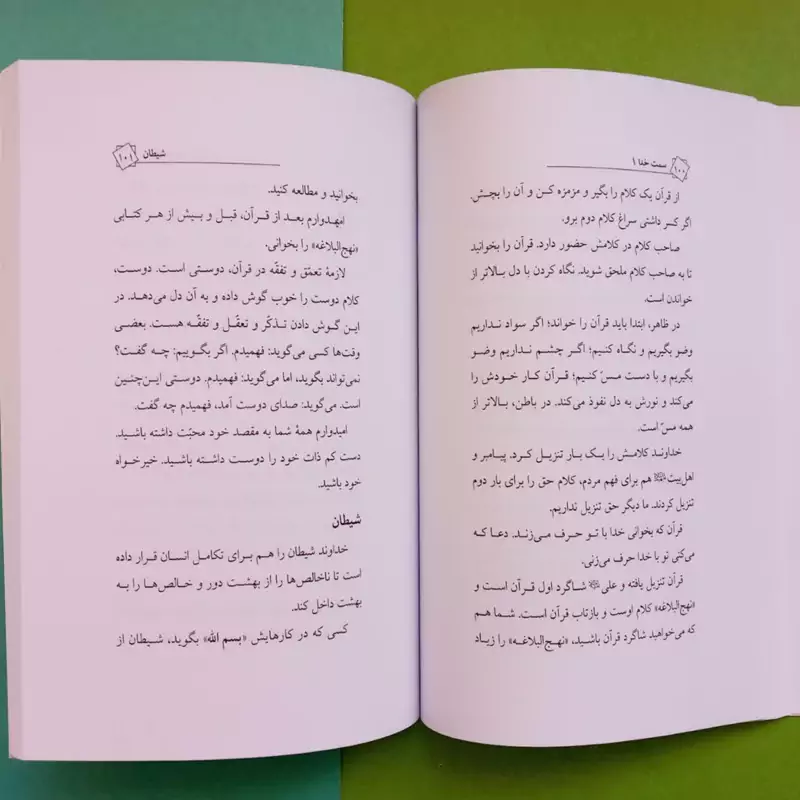 ۱۰۰ سمت خدا ۱
از قرآن یک کلام را بگیر و مزمزه کن و آن را بچش.
اگر کسر داشتی سراغ کلام دوم برو.
صاحب کلام در کلامش حضور دارد. قرآن را بخوانید
تا به صاحب کلام ملحق شوید. نگاه کردن با دل بالاتر از
خواندن است.
در ظاهر، ابتدا باید قرآن را خواند؛ اگر سواد نداریم
وضو بگیریم و نگاه کنیم؛ اگر چشم نداریم وضو
بگیریم و با دست مسّ کنیم؛ قرآن کار خودش را
می‌کند و نورش به دل نفوذ می‌کند. در باطن، بالاتر از
همه مسّ است.
خداوند کلامش را یک بار تنزیل کرد. پیامبر و
اهل‌بیت هم برای فهم مردم، کلام حق را برای بار دوم
تنزیل کردند. ما دیگر حق تنزیل نداریم.
قرآن که بخوانی خدا با تو حرف می‌زند. دعا که
می‌کنی تو با خدا حرف می‌زنی.
قرآن تنزیل یافته و علی شاگرد اول قرآن است و
«نهج‌البلاغه» کلام اوست و بازتاب قرآن است. شما هم
که می‌خواهید شاگرد قرآن باشید، «نهج‌البلاغه» را زیاد
شیطان ۱۰۱
بخوانید و مطالعه کنید.
امهدوارم بعد از قرآن، قبل و بیش از هر کتابی
«نهج‌البلاغه» را بخوانی.
لازمهٔ تعمّق و تفقّه در قرآن، دوستی است. دوست،
کلام دوست را خوب گوش داده و به آن دل می‌دهد. در
این گوش دادن تذکّر و تعقّل و تفقّه هست. بعضی
وقت‌ها کسی می‌گوید: فهمیدم. اگر بگوییم: چه گفت؟
نمی‌تواند بگوید، اما می‌گوید: فهمیدم. دوستی این‌چنین
است. می‌گوید: صدای دوست آمد، فهمیدم چه گفت.
امیدوارم همهٔ شما به مقصد خود محبّت داشته باشید.
دست کم ذات خود را دوست داشته باشید. خیرخواه
خود باشید.
شیطان
خداوند شیطان را هم برای تکامل انسان قرار داده
است تا ناخالص‌ها را از بهشت دور و خالص‌ها را به
بهشت داخل کند.
کسی که در کارهایش «بسم الله» بگوید، شیطان از